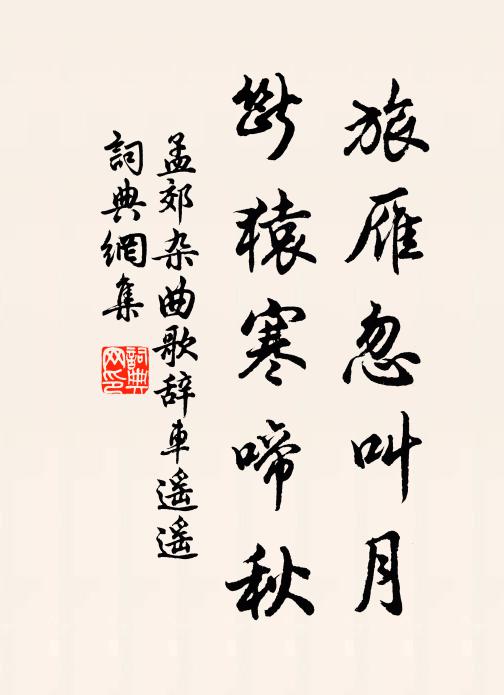 旅雁忽叫月
断猿寒啼秋
孟郊杂曲歌辞车遥遥
詞典網集